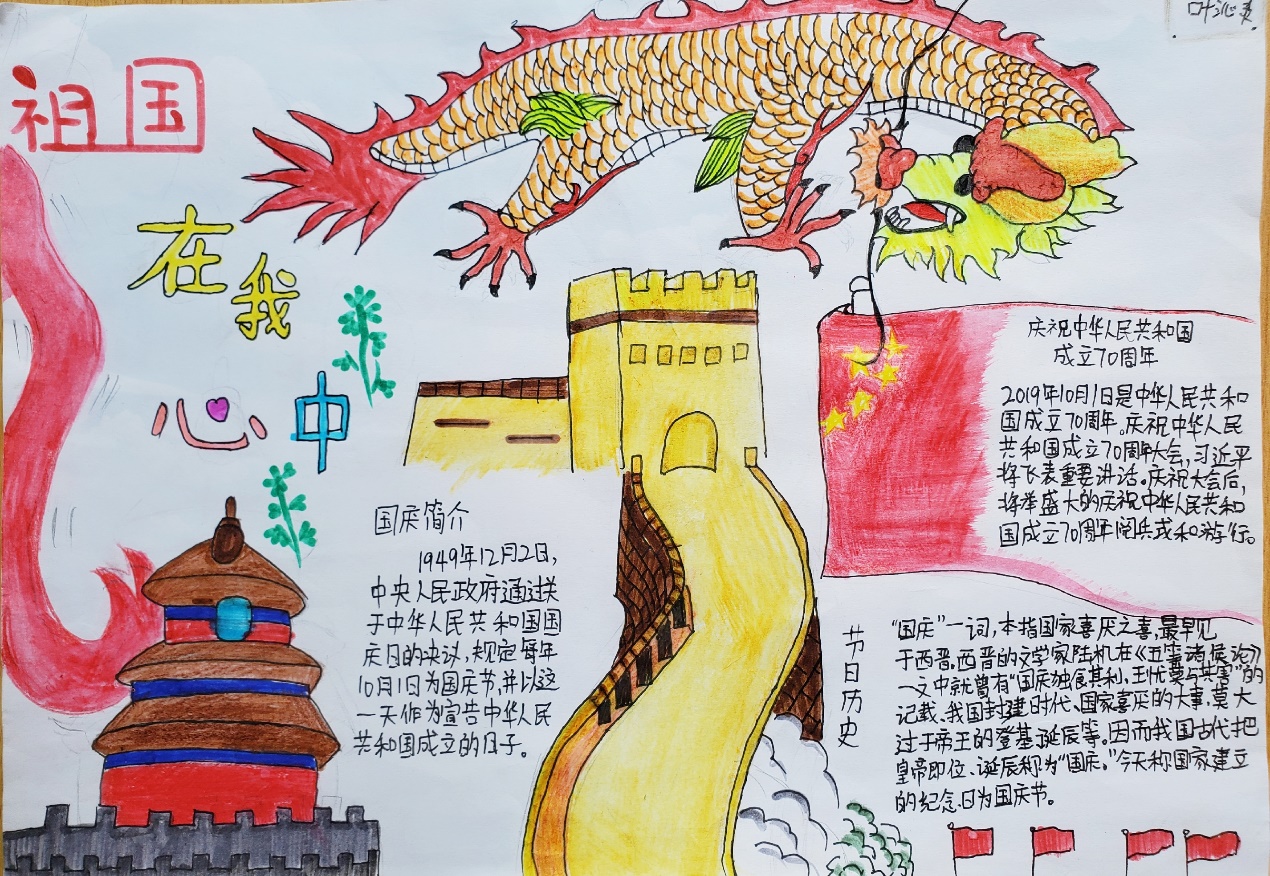 祖国
在我
心中
国庆简介
1949年12月2日,
中央人民政府通过关
于中华人民共和国国
庆日的决议,规定每年
10月1日为国庆节,并以这
一天作为宣告中华人民
共和国成立的日子。
庆祝中华人民共和国
成立70周年
2019年10月1日是中华人民共和
国成立70周年。庆祝中华人民
共和国成立70周年大会,习近平
将飞表重要讲话。庆祝大会后,
将举盛大的庆祝中华人民共和
国成立70周年阅兵式和游行。
节日历史
“国庆”一词,本指国家喜庆之喜,最早见
于西晋。西晋的文学家陆机在《五等诸侯论》
一文中就曾有“国庆独食其利,主忧莫与共害”的
记载、我国封建时代、国家喜庆的大事,莫大
过于帝王的登基、诞辰等。因而我国古代把
皇帝即位、诞辰称为“国庆。”今天称国家建立
的纪念日为国庆节。